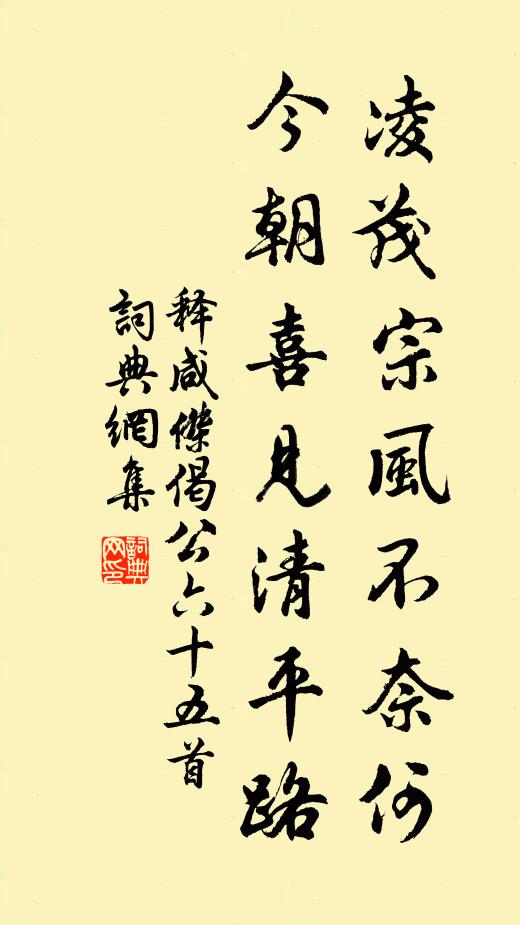 凌茂宗風不奈何
今朝喜見清平路
释咸傑偈公六十五首
詞典網集
詞典網印